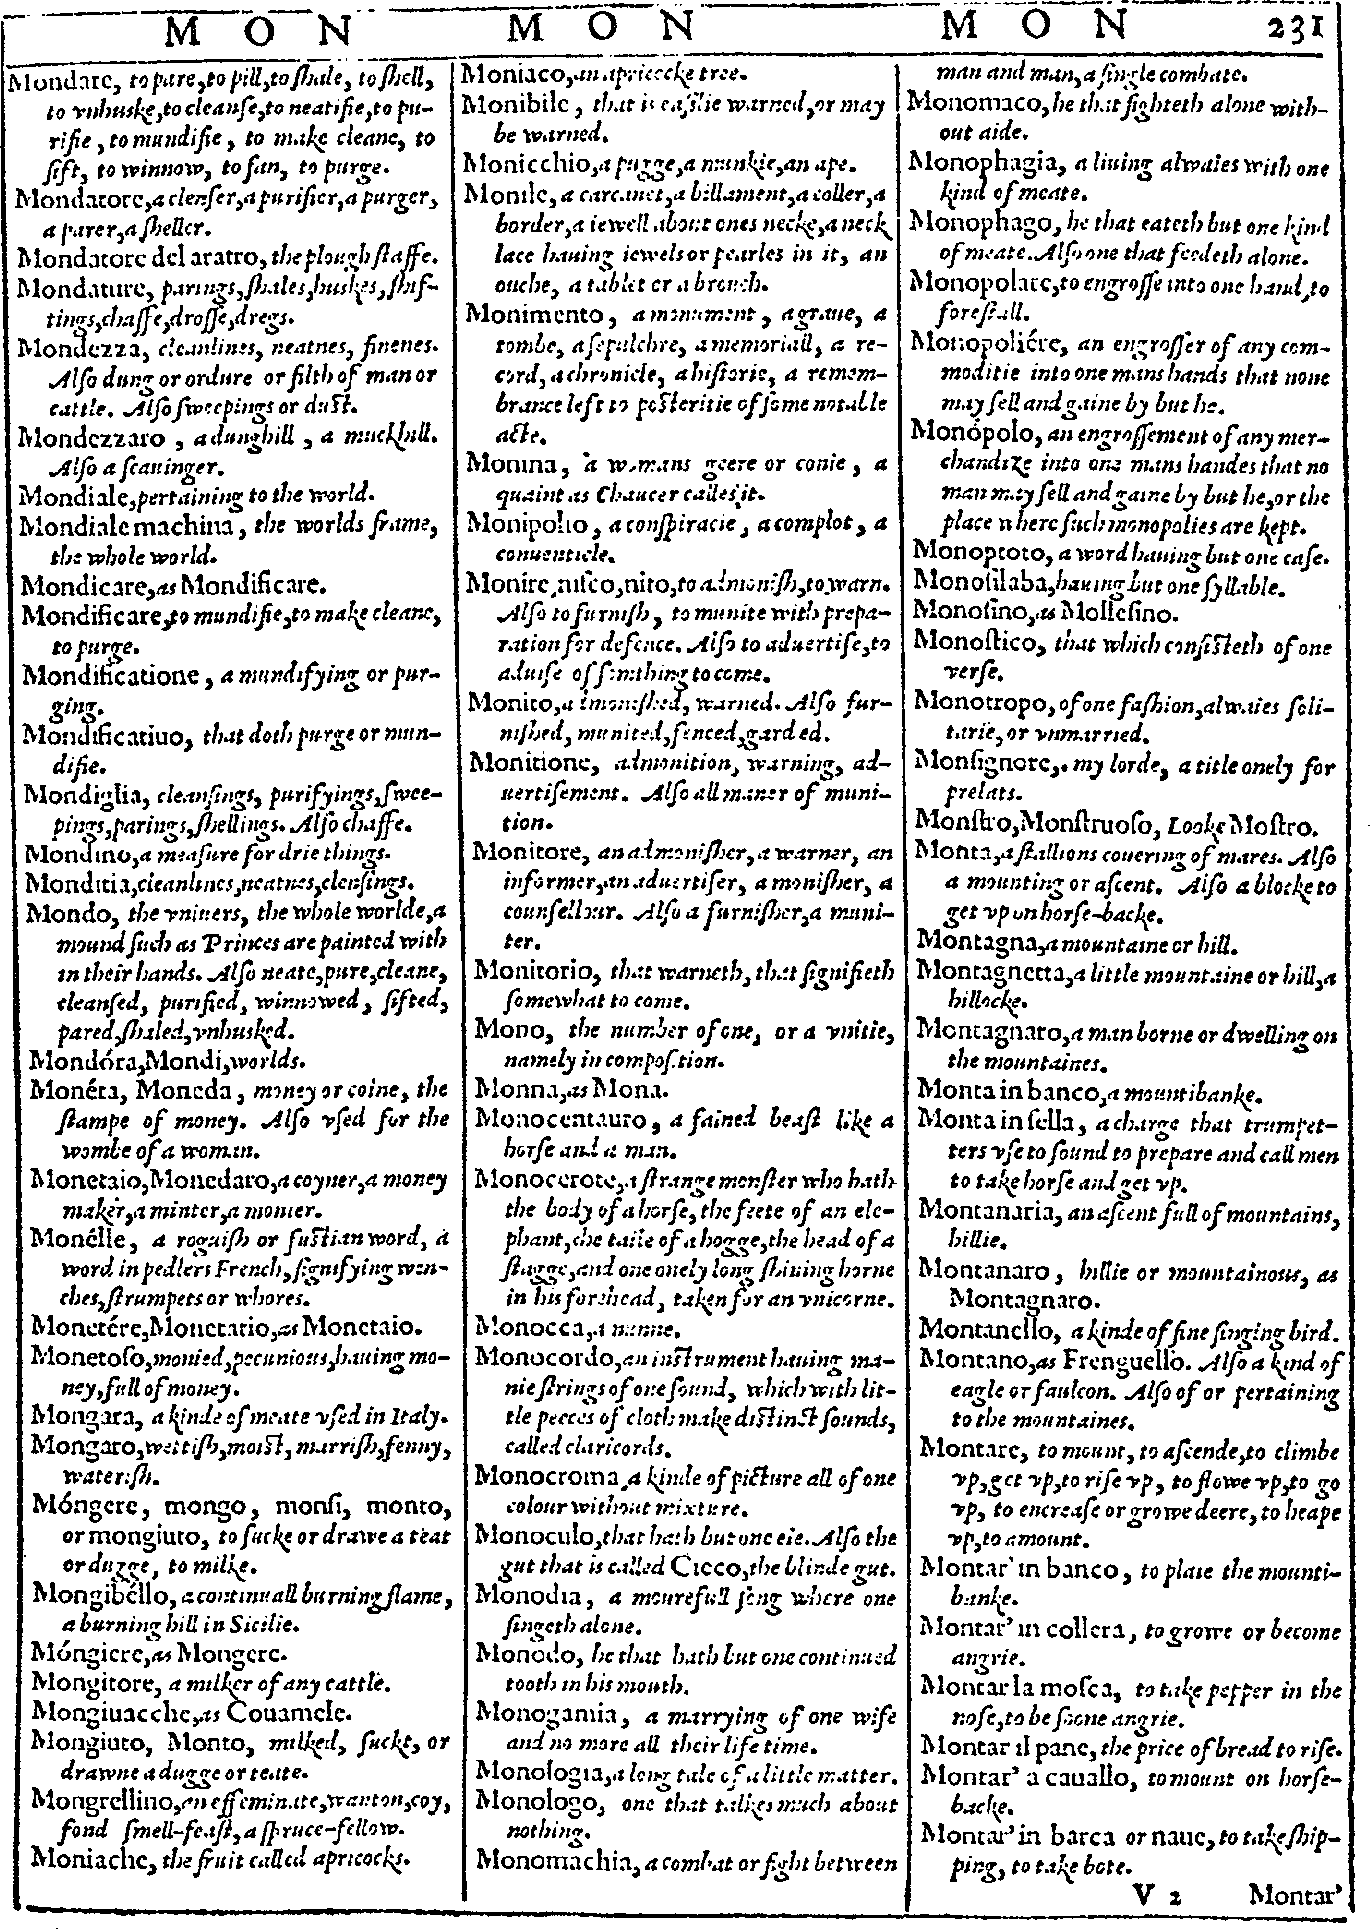 MON MON MON 231
Mondare, to pare, to pill, to shale, to shell,
to vnhuske, to cleanse, to neatifie, to pu-
rifie, to mundifie, to make cleane, to
sift, to winnow, to fan, to purge.
Mondatore, a clenser, a purifier, a purger,
a parer, a sheller.
Mondatore del aratro, the plough staffe.
Mondature, parings, shales, huskes, shif-
tings, chaffe, drosse, dregs.
Mondezza, cleanlines, neatnes, finenes.
Also dung or ordure or filth of man or
cattle. Also sweepings or dust.
Mondezzaro, a dunghill, a muckhill.
Also a scauinger.
Mondiale, pertaining to the world.
Mondiale machina, the worlds frame,
the whole world.
Mondicare, as Mondificare.
Mondificare, to mundifie, to make cleane,
to purge.
Mondificatione, a mundifying or pur-
ging.
Mondificatiuo, that doth purge or mun-
difie.
Mondiglia, cleansings, purifyings, swee-
pings, parings, shellings. Also chaffe.
Mondino, a measure for drie things.
Monditia, cleanlines, neatnes, clensings.
Mondo, the vniuers, the whole worlde, a
mound such as Princes are painted with
in their hands. Also neate, pure, cleane,
cleansed, purified, winnowed, sifted,
pared, shaled, vnhusked.
Mondóra, Mondi, worlds.
Monéta, Moneda, money or coine, the
stampe of money. Also vsed for the
wombe of a woman.
Monetaio, Monedaro, a coyner, a money
maker, a minter, a monier.
Monélle, a roguish or fustian word, a
word in pedlers French, signifying wen-
ches, strumpets or whores.
Monetére, Monetario, as Monetaio.
Monetoso, monied, pecunious, hauing mo-
ney, full of money.
Mongara, a kinde of meate vsed in Italy.
Mongaro, wettish, moist, marrish, fenny,
waterish.
Móngere, mongo, monsi, monto,
or mongiuto, to sucke or drawe a teat
or dugge, to milke.
Mongibéllo, a continuall burning flame,
a burning hill in Sicilie.
Móngiere, as Mongere.
Mongitore, a milker of any cattle.
Mongiuacche, as Couamele.
Mongiuto, Monto, milked, suckt, or
drawne a dugge or teate.
Mongrellino, an effeminate, wanton, coy,
fond smell-feast, a spruce-fellow.
Moniache, the fruit called apricocks.
Moniaco, an apricocke tree.
Monibile, that is easilie warned, or may
be warned.
Monicchio, a pugge, a munkie, an ape.
Monile, a carcanet, a billament, a coller, a
border, a iewell about ones necke, a neck
lace hauing iewels or pearles in it, an
ouche, a tablet or a brooch.
Monimento, a monument, a graue, a
tombe, a sepulchre, a memoriall, a re-
cord, a chronicle, a historie, a remem-
brance left to posteritie of some notable
acte.
Monina, a womans geere or conie, a
quaint as Chaucer calles it.
Monipolio, a conspiracie, a complot, a
conuenticle.
Monire, nisco, nito, to admonish, to warn.
Also to furnish, to munite with prepa-
ration for defence. Also to aduertise, to
aduise of somthing to come.
Monito, admonished, warned. Also fur-
nished, munited, fenced, garded.
Monitione, admonition, warning, ad-
uertisement. Also all maner of muni-
tion.
Monitore, an admonisher, a warner, an
informer, an aduertiser, a monisher, a
counsellour. Also a furnisher, a muni-
ter.
Monitorio, that warneth, that signifieth
somewhat to come.
Mono, the number of one, or a vnitie,
namely in composition.
Monna, as Mona.
Monocentauro, a fained beast like a
horse and a man.
Monocerote, a strange monster who hath
the body of a horse, the feete of an ele-
phant, the taile of a hogge, the head of a
stagge, and one onely long shining horne
in his forehead, taken for an vnicorne.
Monocca, a nunne.
Monocordo, an instrument hauing ma-
nie strings of one sound, which with lit-
tle peeces of cloth make distinct sounds,
called claricords.
Monocroma, a kinde of picture all of one
colour without mixture.
Monoculo, that hath but one eie. Also the
gut that is called Cieco, the blinde gut.
Monodia, a mourefull song where one
singeth alone.
Monodo, he that hath but one continued
tooth in his mouth.
Monogamia, a marrying of one wife
and no more all their life time.
Monologia, a long tale of a little matter.
Monologo, one that talkes much about
nothing.
Monomachia, a combat or fight between
man and man, a single combate.
Monomaco, he that fighteth alone with-
out aide.
Monophagia, a liuing alwaies with one
kind of meate.
Monophago, he that eateth but one kind
of meate. Also one that feedeth alone.
Monopolare, to engrosse into one hand, to
forestall.
Monopoliére, an engrosser of any com-
moditie into one mans hands that none
may sell and gaine by but he.
Monópolo, an engrossement of any mer-
chandize into one mans handes that no
man may sell and gaine by but he, or the
place where such monopolies are kept.
Monoptoto, a word hauing but one case.
Monosilaba, hauing but one syllable.
Monosino, as Mollesino.
Monostico, that which consisteth of one
verse.
Monotropo, of one fashion, alwaies soli-
tarie, or vnmarried.
Monsignore, my lorde, a title onely for
prelats.
Monstro, Monstruoso, Looke Mostro.
Monta, a stallions couering of mares. Also
a mounting or ascent. Also a blocke to
get vp on horse-backe.
Montagna, a mountaine or hill.
Montagnetta, a little mountaine or hill, a
hillocke.
Montagnaro, a man borne or dwelling on
the mountaines.
Monta in banco, a mountibanke.
Monta in sella, a charge that trumpet-
ters vse to sound to prepare and call men
to take horse and get vp.
Montanaria, an ascent full of mountains,
hillie.
Montanaro, hillie or mountainous, as
Montagnaro.
Montanello, a kinde of fine singing bird.
Montano, as Frenguello. Also a kind of
eagle or faulcon. Also of or pertaining
to the mountaines.
Montare, to mount, to ascende, to climbe
vp, get vp, to rise vp, to flowe vp, to go
vp, to encrease or growe deere, to heape
vp, to amount.
Montar' in banco, to plaie the mounti-
banke.
Montar' in collera, to growe or become
angrie.
Montar la mosca, to take pepper in the
nose, to be soone angrie.
Montar il pane, the price of bread to rise.
Montar' a cauallo, to mount on horse-
backe.
Montar' in barca or naue, to take ship-
ping, to take bote.
V 2 Montar'